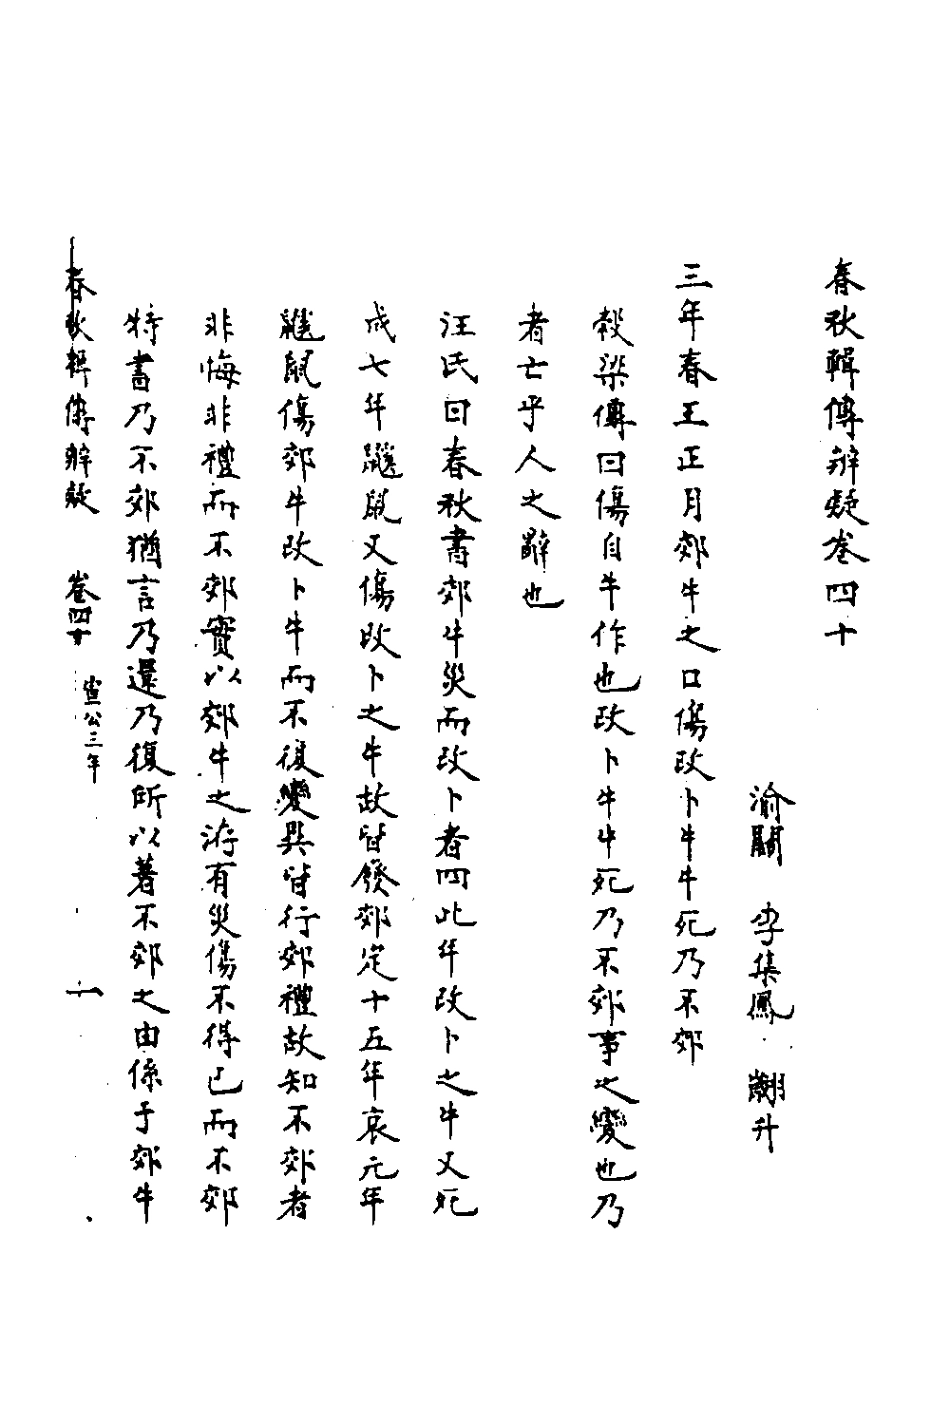 春秋輯傳辨疑卷四十
渝關　李集鳳　翽升
三年春王正月郊牛之口傷改卜牛牛死乃不郊
穀梁傳曰傷自牛作也改卜牛牛死乃不郊事之變也乃
者亡乎人之辭也
汪氏曰春秋書郊牛災而改卜者四此年改卜之牛又死
成七年鼷鼠又傷改卜之牛故皆發郊定十五年哀元年
鼷鼠傷郊牛改卜牛而不復變異皆行郊禮故知不郊者
非悔非禮而不郊實以郊牛之洊有災傷不得已而不郊
特書乃不郊猶言乃還乃復所以著不郊之由係于郊牛
春秋輯傳辨疑　卷四十　宣公三年　一